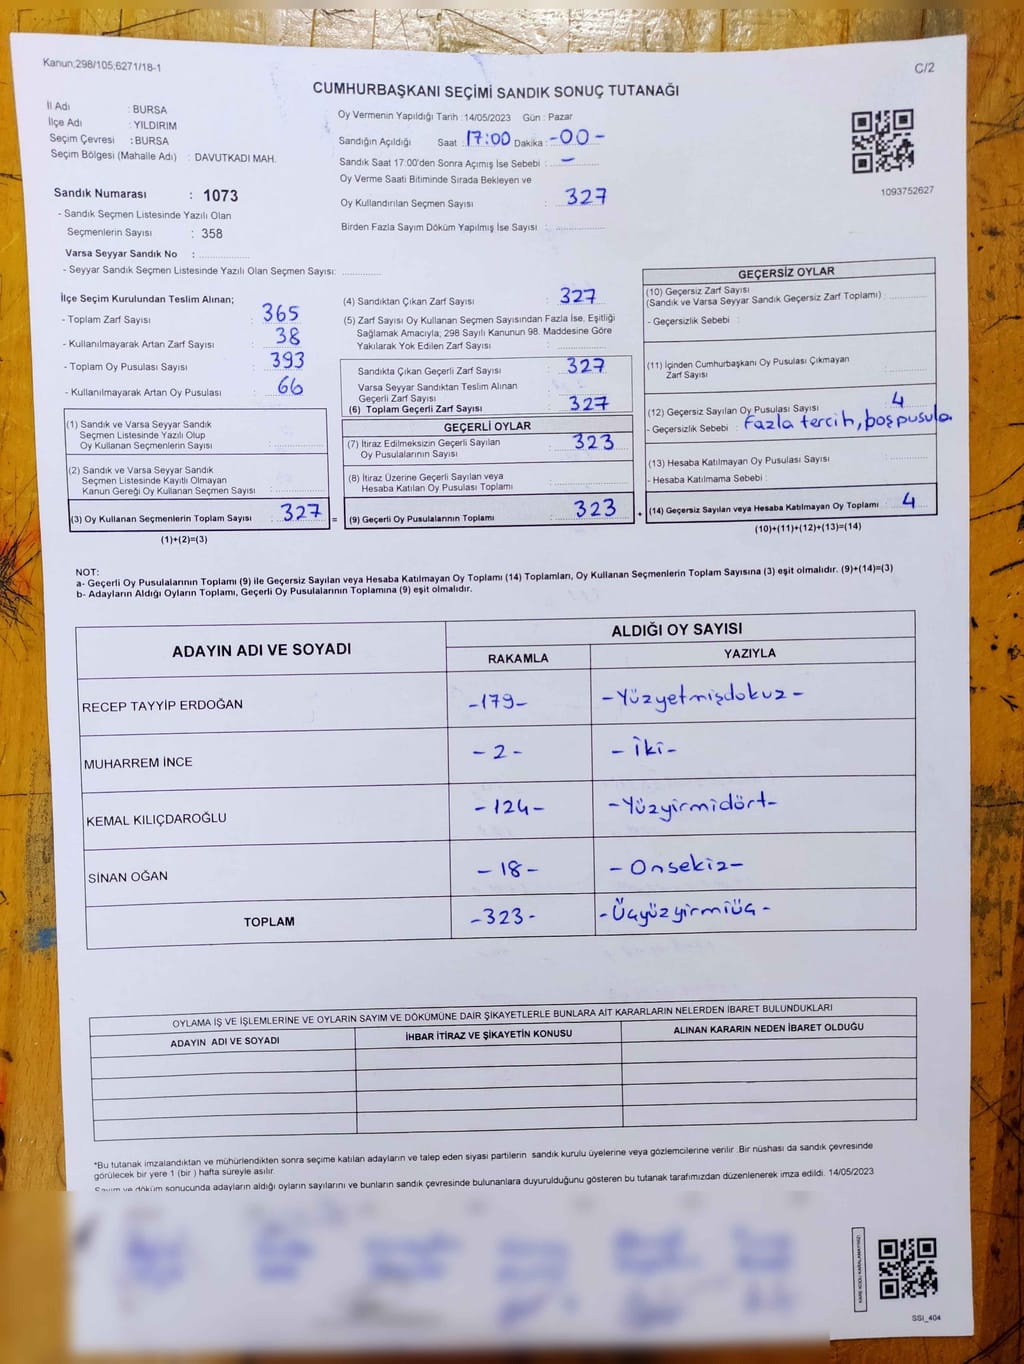 Kanun;298/105;6271/18-1
C/2
CUMHURBAŞKANI SEÇİMİ SANDIK SONUÇ TUTANAĞI
İl Adı : BURSA
İlçe Adı : YILDIRIM
Seçim Çevresi : BURSA
Seçim Bölgesi (Mahalle Adı) : DAVUTKADI MAH.
Sandık Numarası : 1073
- Sandık Seçmen Listesinde Yazılı Olan
Seçmenlerin Sayısı : 358
Varsa Seyyar Sandık No :
- Seyyar Sandık Seçmen Listesinde Yazılı Olan Seçmen Sayısı:
Oy Vermenin Yapıldığı Tarih : 14/05/2023 Gün : Pazar
Sandığın Açıldığı Saat : 17:00 Dakika : -00-
Sandık Saat 17:00'den Sonra Açımış İse Sebebi : -
Oy Verme Saati Bitiminde Sırada Bekleyen ve
Oy Kullandırılan Seçmen Sayısı : 327
Birden Fazla Sayım Döküm Yapılmış İse Sayısı :
1093752627
İlçe Seçim Kurulundan Teslim Alınan;
- Toplam Zarf Sayısı : 365
- Kullanılmayarak Artan Zarf Sayısı : 38
- Toplam Oy Pusulası Sayısı : 393
- Kullanılmayarak Artan Oy Pusulası : 66
(1) Sandık ve Varsa Seyyar Sandık
Seçmen Listesinde Yazılı Olup
Oy Kullanan Seçmenlerin Sayısı :
(2) Sandık ve Varsa Seyyar Sandık
Seçmen Listesinde Kayıtlı Olmayan
Kanun Gereği Oy Kullanan Seçmen Sayısı :
(3) Oy Kullanan Seçmenlerin Toplam Sayısı : 327
(1)+(2)=(3)
=
(4) Sandıktan Çıkan Zarf Sayısı : 327
(5) Zarf Sayısı Oy Kullanan Seçmen Sayısından Fazla İse, Eşitliği
Sağlamak Amacıyla; 298 Sayılı Kanunun 98. Maddesine Göre
Yakılarak Yok Edilen Zarf Sayısı :
Sandıkta Çıkan Geçerli Zarf Sayısı : 327
Varsa Seyyar Sandıktan Teslim Alınan
Geçerli Zarf Sayısı :
(6) Toplam Geçerli Zarf Sayısı : 327
GEÇERLİ OYLAR
(7) İtiraz Edilmeksizin Geçerli Sayılan
Oy Pusulalarının Sayısı : 323
(8) İtiraz Üzerine Geçerli Sayılan veya
Hesaba Katılan Oy Pusulası Toplamı :
(9) Geçerli Oy Pusulalarının Toplamı : 323
+
GEÇERSİZ OYLAR
(10) Geçersiz Zarf Sayısı
(Sandık ve Varsa Seyyar Sandık Geçersiz Zarf Toplamı) :
- Geçersizlik Sebebi :
(11) İçinden Cumhurbaşkanı Oy Pusulası Çıkmayan
Zarf Sayısı :
(12) Geçersiz Sayılan Oy Pusulası Sayısı : 4
- Geçersizlik Sebebi : Fazla tercih, boş pusula.
(13) Hesaba Katılmayan Oy Pusulası Sayısı :
- Hesaba Katılmama Sebebi :
(14) Geçersiz Sayılan veya Hesaba Katılmayan Oy Toplamı : 4
(10)+(11)+(12)+(13)=(14)
NOT:
a- Geçerli Oy Pusulalarının Toplamı (9) ile Geçersiz Sayılan veya Hesaba Katılmayan Oy Toplamı (14) Toplamları, Oy Kullanan Seçmenlerin Toplam Sayısına (3) eşit olmalıdır. (9)+(14)=(3)
b- Adayların Aldığı Oyların Toplamı, Geçerli Oy Pusulalarının Toplamına (9) eşit olmalıdır.
ADAYIN ADI VE SOYADI
ALDIĞI OY SAYISI
RAKAMLA YAZIYLA
RECEP TAYYİP ERDOĞAN -179- -Yüzyetmişdokuz-
MUHARREM İNCE -2- -İki-
KEMAL KILIÇDAROĞLU -124- -Yüzyirmidört-
SİNAN OĞAN -18- -Onsekiz-
TOPLAM -323- -Üçyüzyirmiüç-
OYLAMA İŞ VE İŞLEMLERİNE VE OYLARIN SAYIM VE DÖKÜMÜNE DAİR ŞİKAYETLERLE BUNLARA AİT KARARLARIN NELERDEN İBARET BULUNDUKLARI
ADAYIN ADI VE SOYADI İHBAR İTİRAZ VE ŞİKAYETİN KONUSU ALINAN KARARIN NEDEN İBARET OLDUĞU
*Bu tutanak imzalandıktan ve mühürlendikten sonra seçime katılan adayların ve talep eden siyasi partilerin sandık kurulu üyelerine veya gözlemcilerine verilir .Bir nüshası da sandık çevresinde
görülecek bir yere 1 (bir ) hafta süreyle asılır.
Sayım ve döküm sonucunda adayların aldığı oyların sayılarını ve bunların sandık çevresinde bulunanlara duyurulduğunu gösteren bu tutanak tarafımızdan düzenlenerek imza edildi. 14/05/2023
KARE KODU KARALAMAYINIZ!
SSI_404